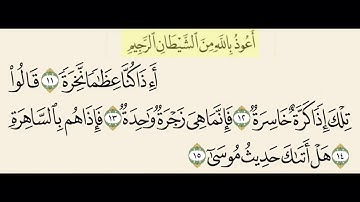 أَعُوذُ بِاللَّهِ مِنَ الشَّيْطَانِ الرَّجِيمِ
أَءِذَا كُنَّا عِظَٰمًا نَّخِرَةً ١١ قَالُوا۟
تِلْكَ إِذًا كَرَّةٌ خَاسِرَةٌ ١٢ فَإِنَّمَا هِىَ زَجْرَةٌ وَٰحِدَةٌ ١٣ فَإِذَا هُم بِٱلسَّاهِرَةِ
١٤ هَلْ أَتَىٰكَ حَدِيثُ مُوسَىٰٓ ١٥